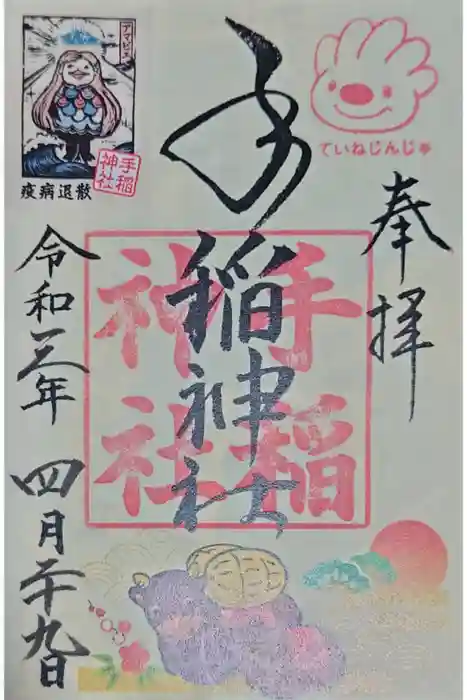 奉拝
ていねじんじゃ
手稲神社
手稲
神社
アマビエ
手稲
神社
疫病退散
令和三年四月二十九日